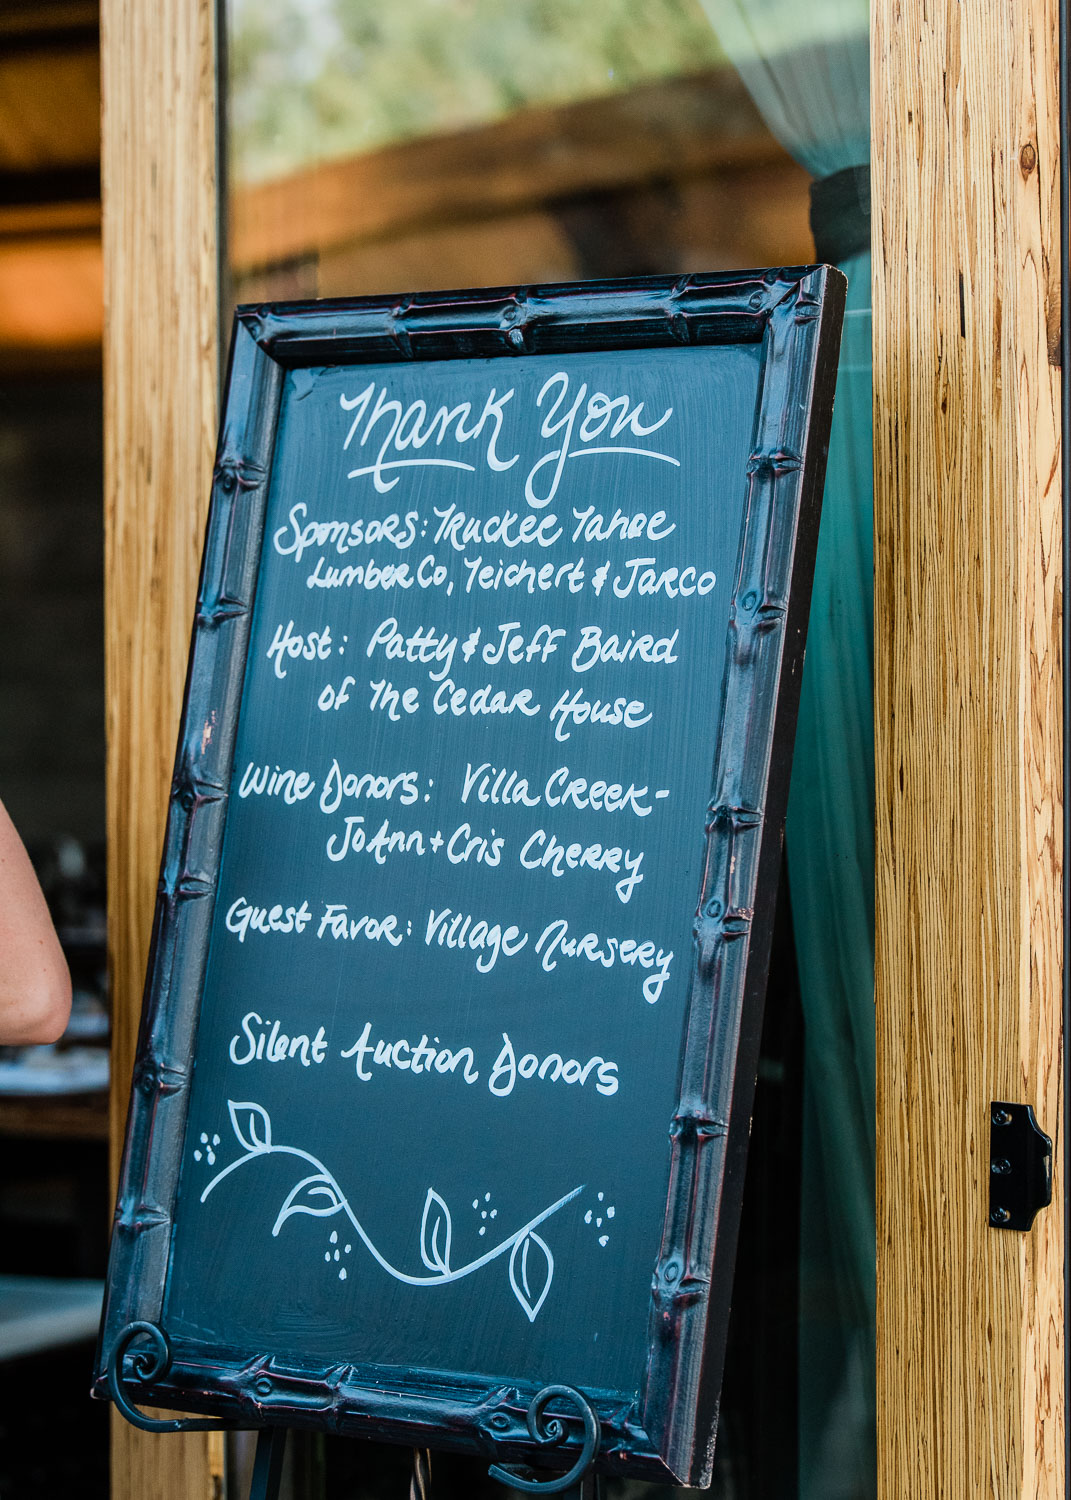 Thank You
Sponsors: Truckee Tahoe
Lumber Co, Teichert & Jarco
Host: Patty & Jeff Baird
of The Cedar House
Wine Donors: Villa Creek-
JoAnn + Cris Cherry
Guest Favor: Village Nursery
Silent Auction Donors